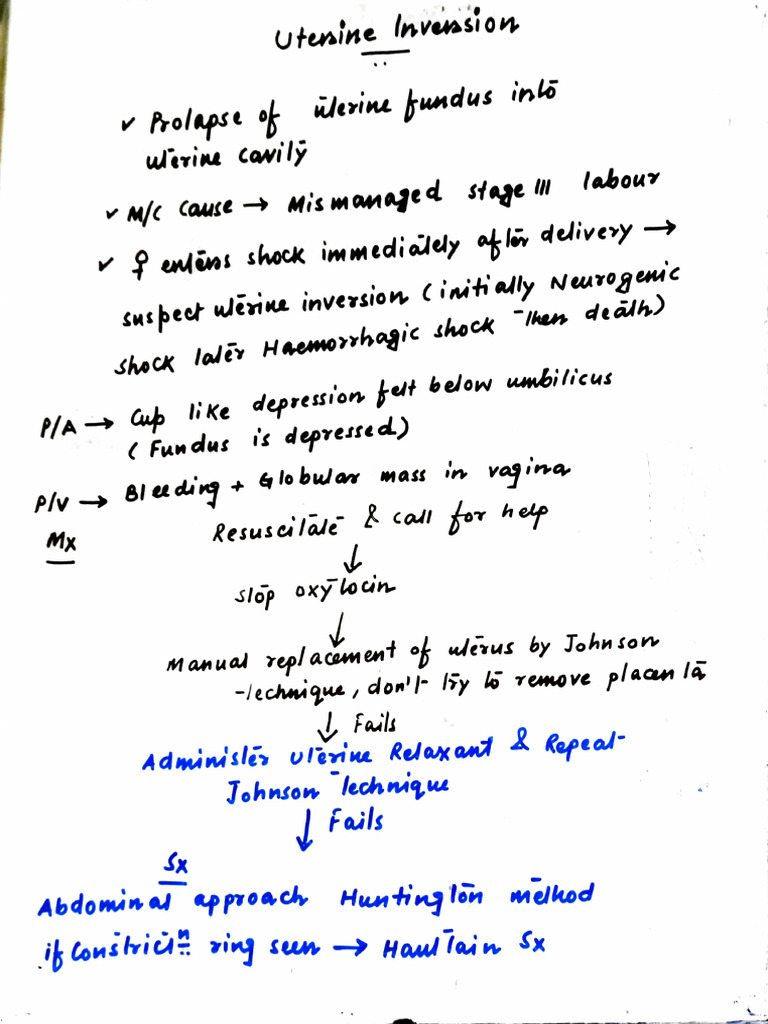 Uterine Inversion
✓ Prolapse of uterine fundus into
uterine cavity
✓ M/C cause → Mismanaged stage III labour
✓ ♀ enters shock immediately after delivery →
suspect uterine inversion (initially Neurogenic
shock later Haemorrhagic shock then death)
P/A → Cup like depression felt below umbilicus
(Fundus is depressed)
P/V → Bleeding + Globular mass in vagina
Mx Resuscitate & call for help
↓
Stop oxytocin
↓
Manual replacement of uterus by Johnson
technique, don't try to remove placenta
↓ Fails
Administer Uterine Relaxant & Repeat
Johnson Technique
↓ Fails
Sx
Abdominal approach Huntington method
if Constrictⁿ ring seen → Haultain Sx